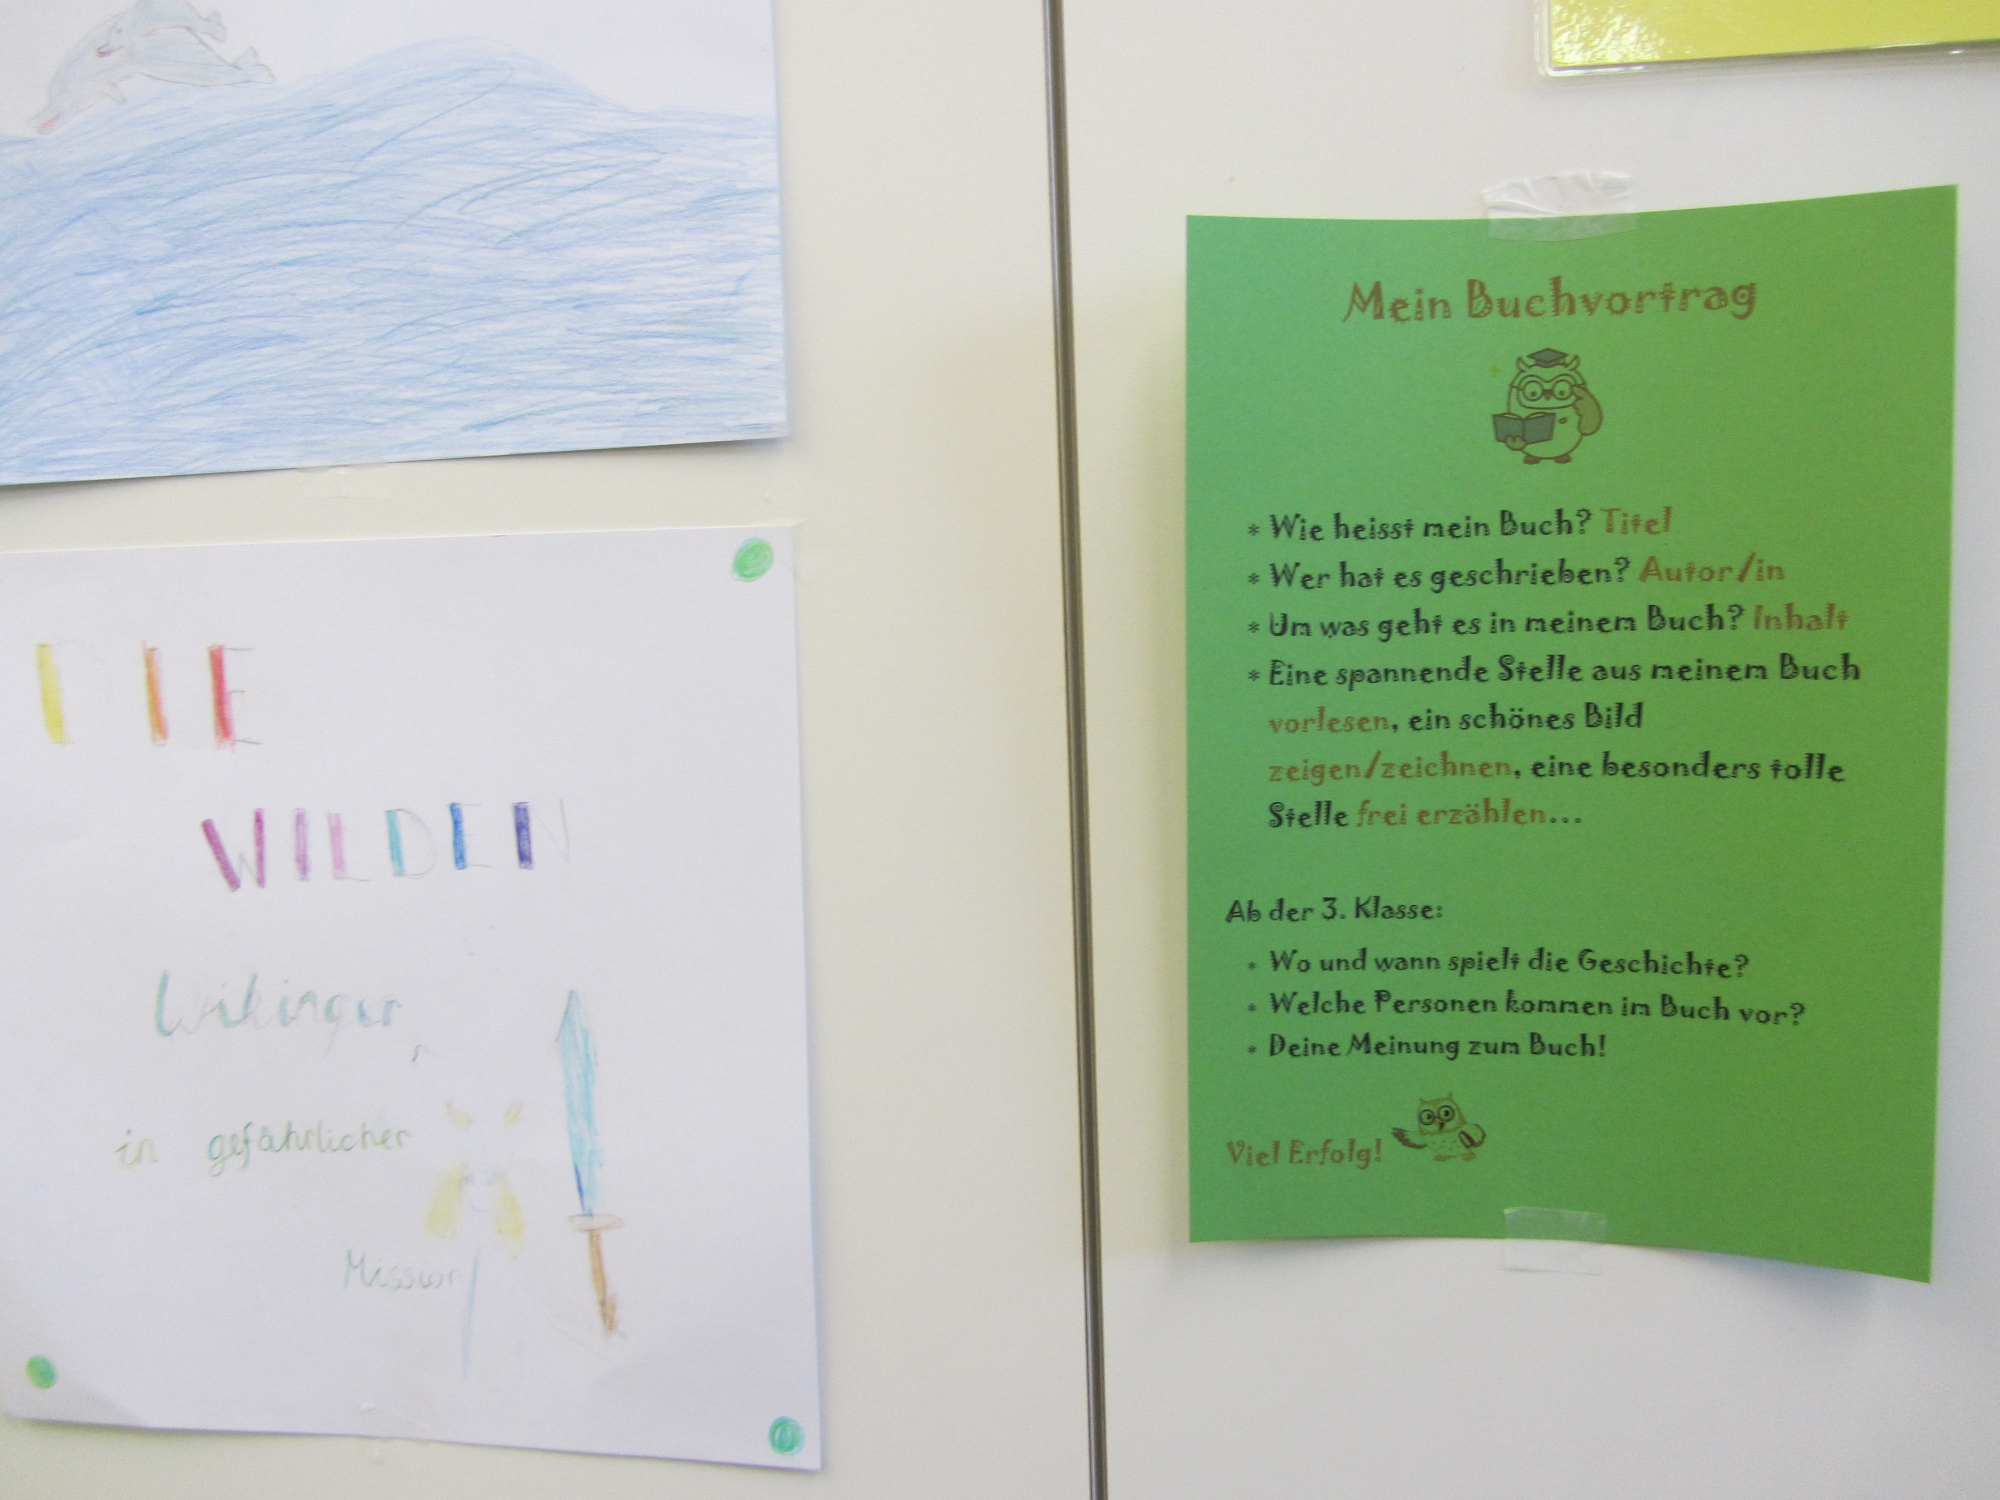 DIE
WILDEN
Wikinger
in gefährlicher
Mission
Mein Buchvortrag
* Wie heisst mein Buch? Titel
* Wer hat es geschrieben? Autor/in
* Um was geht es in meinem Buch? Inhalt
* Eine spannende Stelle aus meinem Buch
vorlesen, ein schönes Bild
zeigen/zeichnen, eine besonders tolle
Stelle frei erzählen...
Ab der 3. Klasse:
* Wo und wann spielt die Geschichte?
* Welche Personen kommen im Buch vor?
* Deine Meinung zum Buch!
Viel Erfolg!